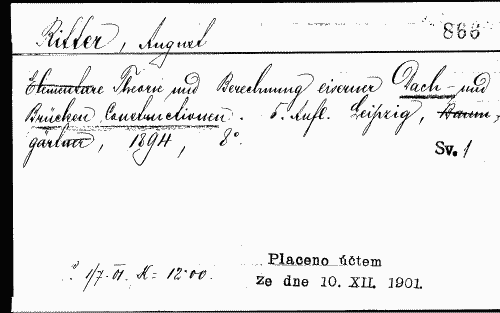 Ritter, August 866
Elementare Theorie und Berechnung eiserner Dach- und
Brücken Constructionen. 5. Aufl. Leipzig, Baum,
gärtner, 1894, 8°.
Sv. 1
1/7. 01. K = 12·00.
Placeno účtem
ze dne 10. XII. 1901.